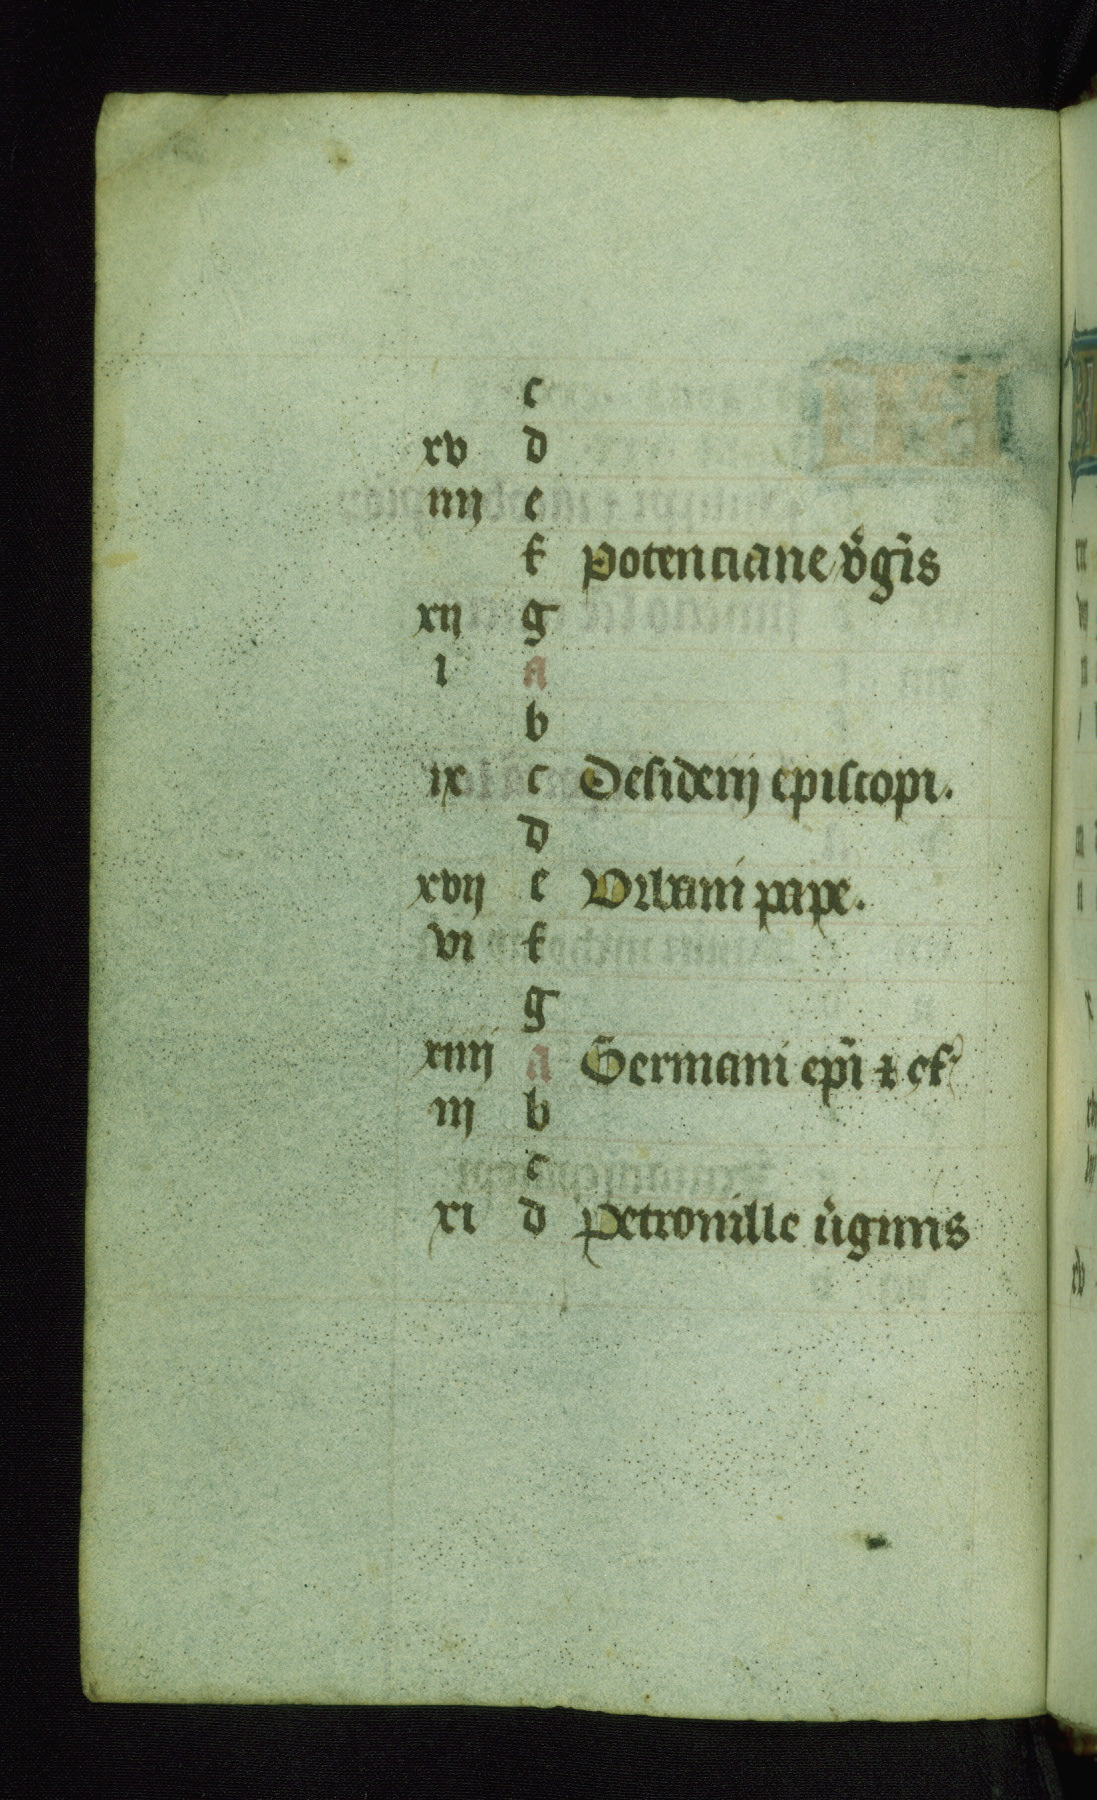 c
xv d
iiij e
f Potenciane v̊gĩs
xij g
i a
b
ix c Desiderij episcopi.
d
xvij e Vrbani pape.
vi f
g
xiiij a Germani ep̃i ⁊ cf
iij b
c
xi d Petronille v̊ginis